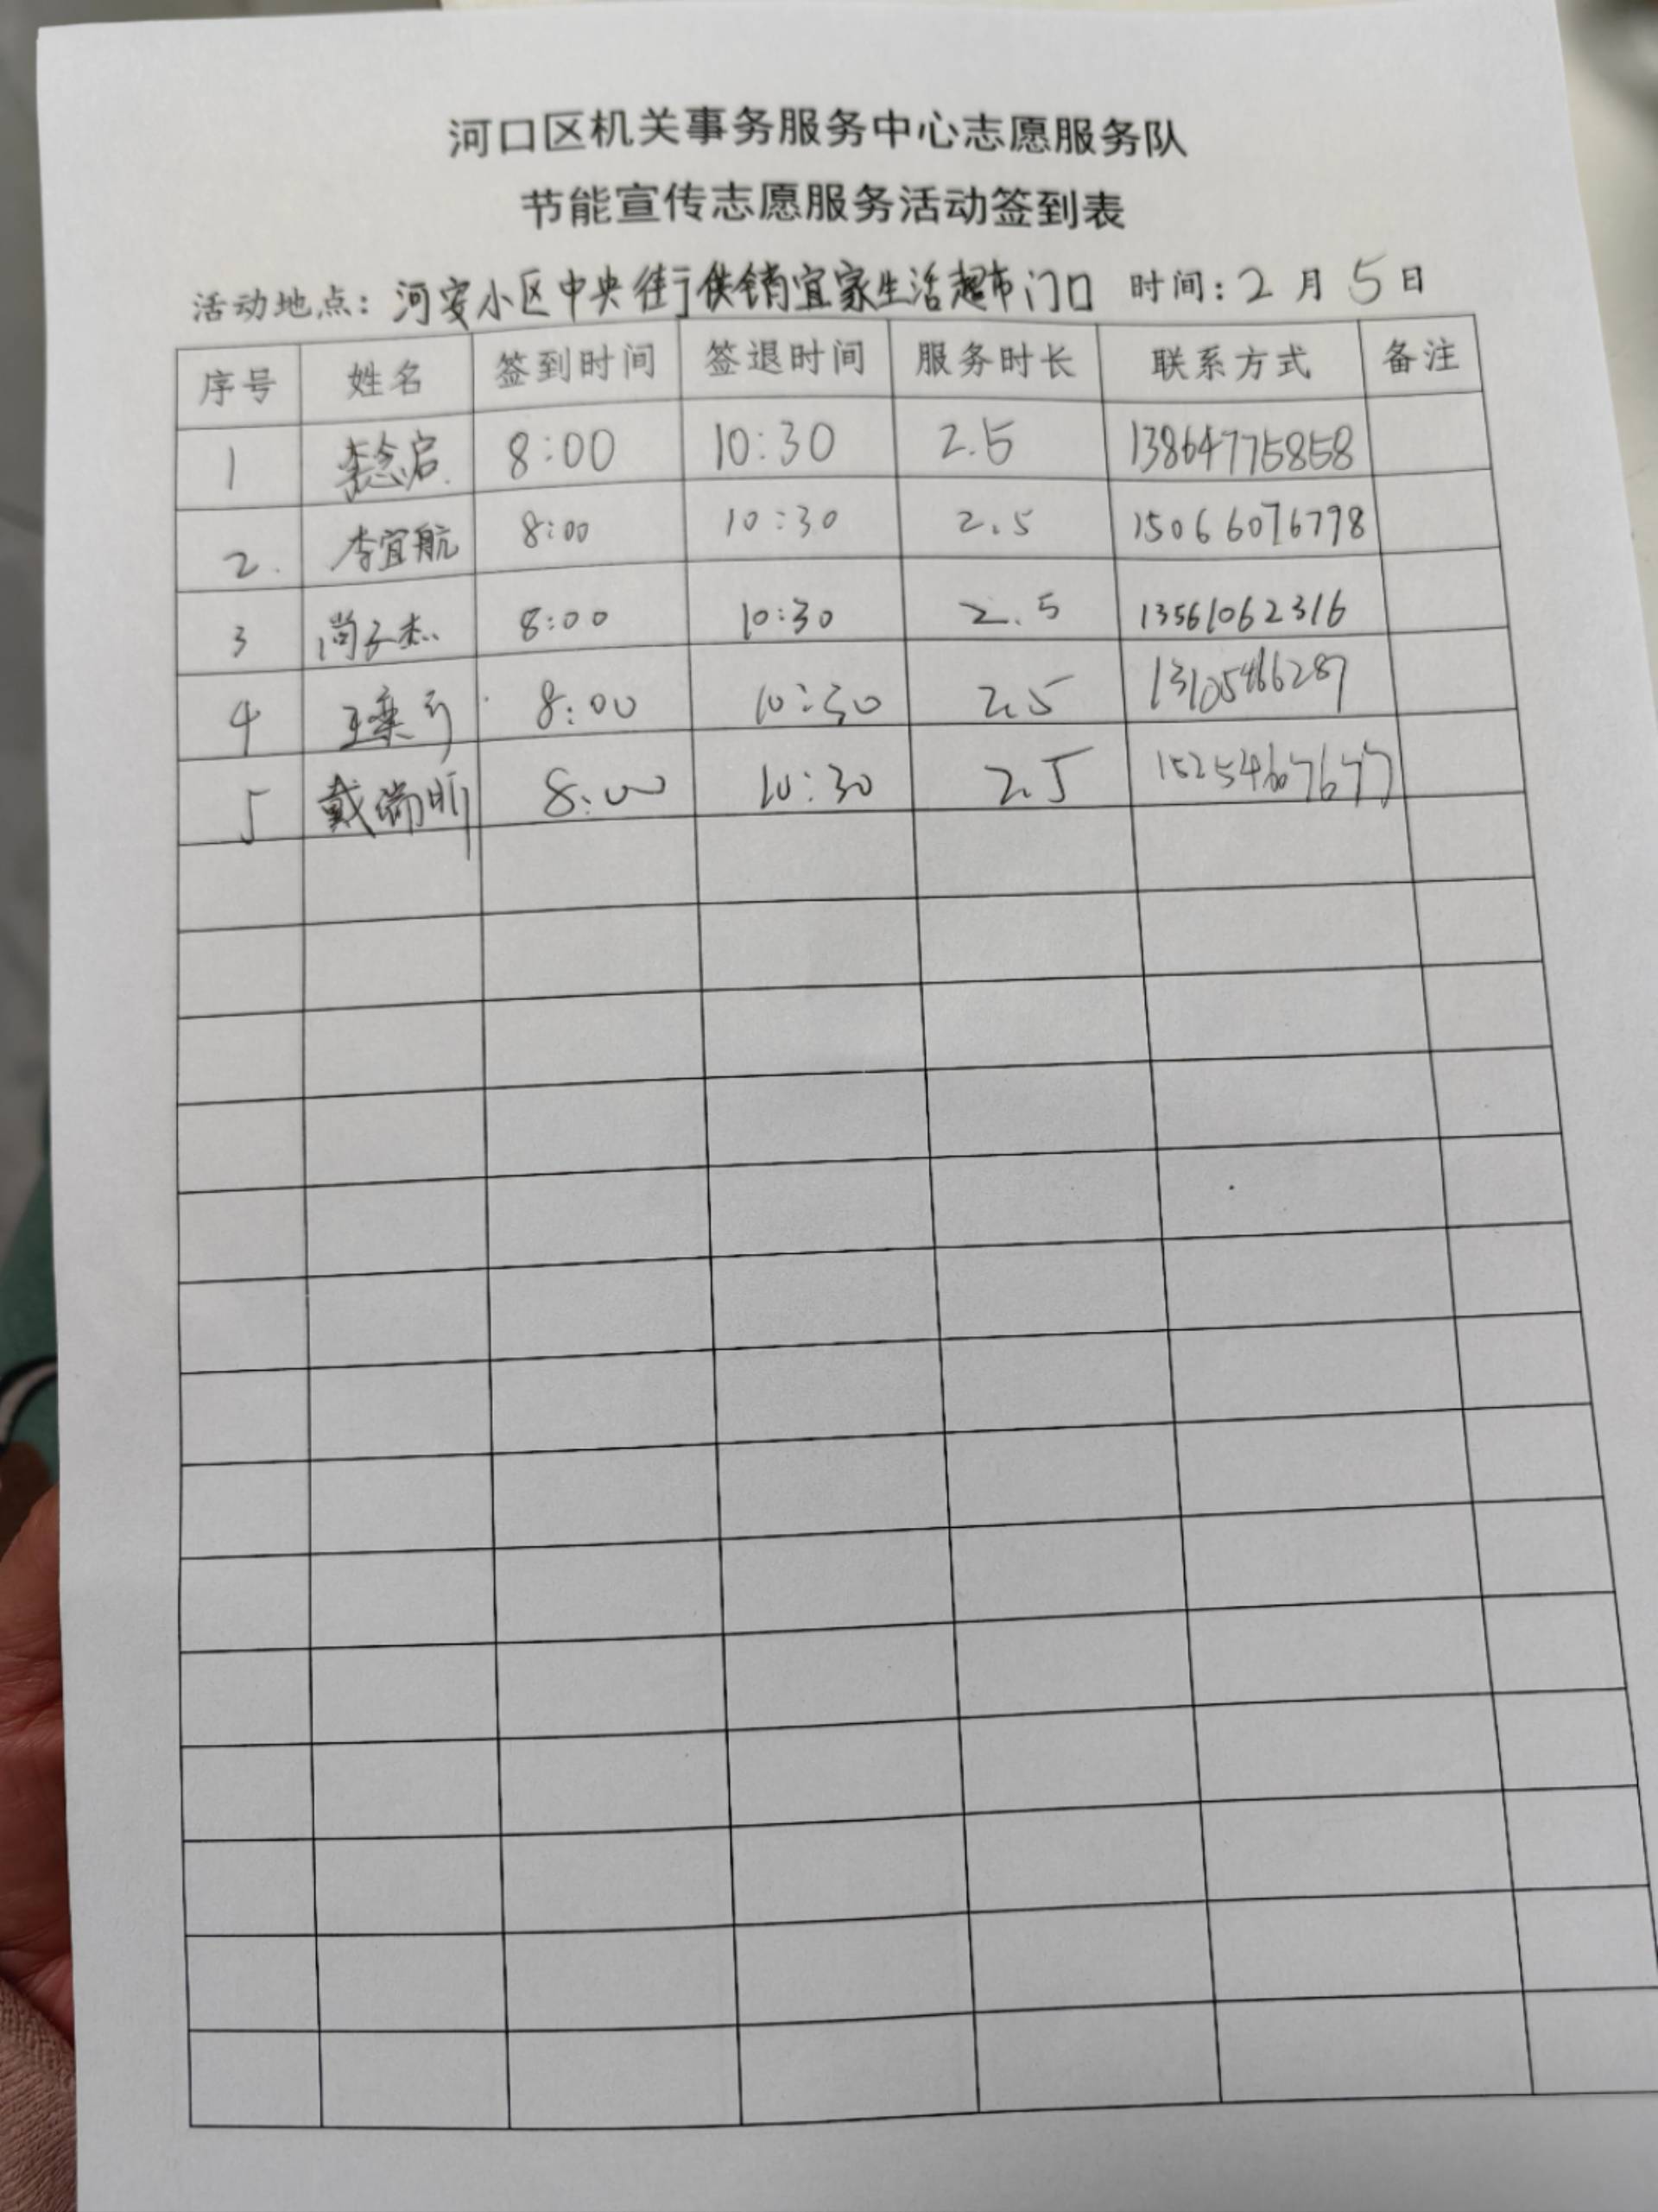 河口区机关事务服务中心志愿服务队
节能宣传志愿服务活动签到表
活动地点：河安小区中央街供销宜家生活超市门口 时间：2月5日
序号 姓名 签到时间 签退时间 服务时长 联系方式 备注
1 李念启 8:00 10:30 2.5 13864775858
2. 李宜航 8:00 10:30 2.5 15066076798
3 尚子杰 8:00 10:30 2.5 13561062316
4 8:00 10:30 2.5 13105466287
5 8:00 10:30 2.5